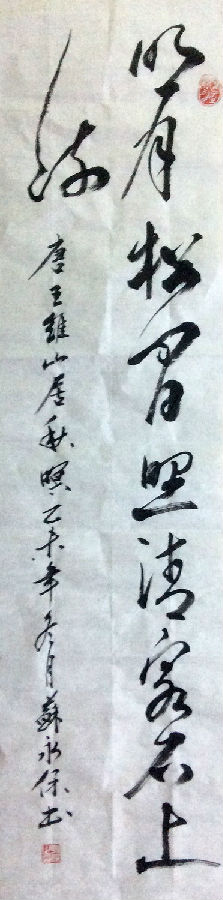 明月松間照清泉石上
流
唐王維山居秋暝乙未年冬月蘇永保书